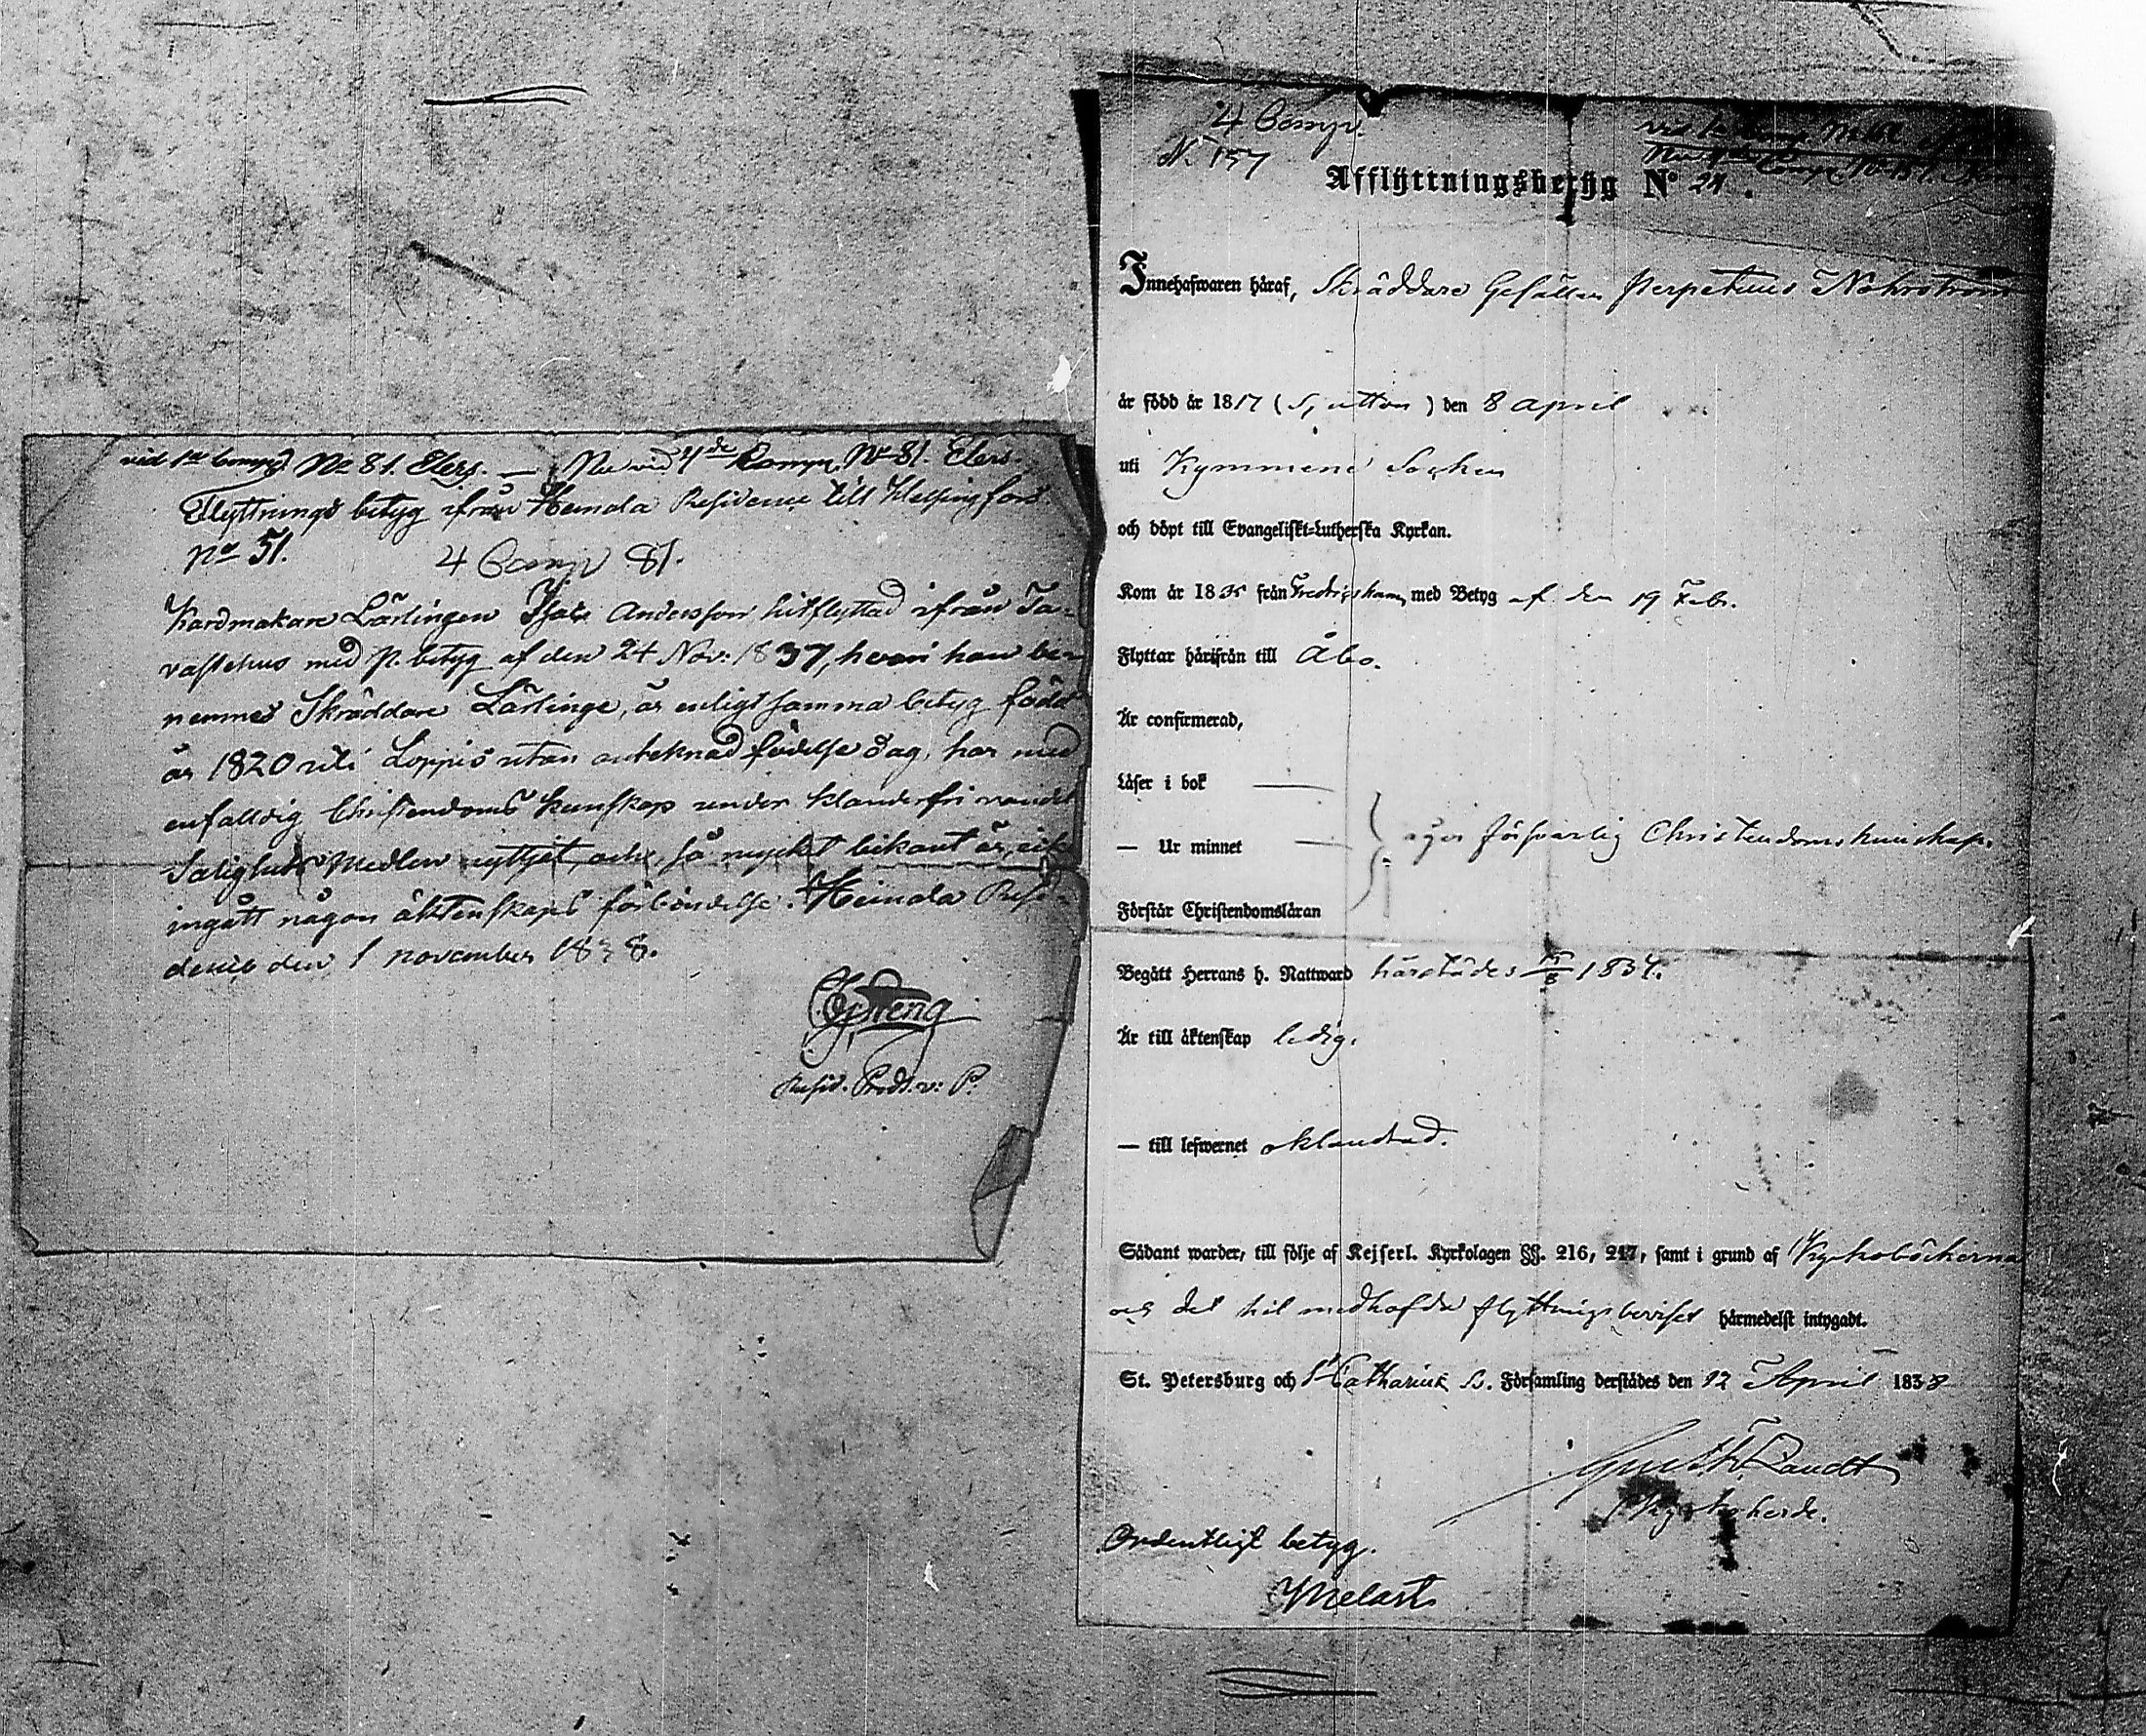 vid 1ste Comp. No 81. Elers. — Nu vid 4de Comp. No 81. Elers.
Flyttnings betyg ifrån Heinola Residence till Helsingfors
No 51.
4 Comp 81.
Kardmakare Lärlingen Isac Andersson hitflyttad ifrån Ta-
vastehus med p. betyg af den 24 Nov: 1837, hvari han be-
nemnes Skräddare Lärlinge, är enligt samma betyg född
år 1820 uti Loppis utan anteknad födelse dag, har med
enfalldig Christendoms kunskap under klanderfri vandel
Salighets Medlen nyttjat, och, så mycket bekant är, eik
ingått någon äktenskaps förbindelse. Heinola Resi-
dence den 1 november 1838.
Resid. Pred. v: P.
4 Comp.
N. 157
vid 1ste Comp. No
Nu 4de Comp. No 157.
Afflyttningsbetyg No 24.
Innehafwaren häraf, Skräddare Gesällen Perpetuus Nohrström
är född år 1817 (Sjutton) den 8 April
uti Kymmene Sochen
och döpt till Evangeliskt-Lutherska Kyrkan.
Kom år 1835 från Fredrigshamn med Betyg af den 19 Febr.
Flyttar härifrån till Åbo.
Är confirmerad,
Läser i bok —
— Ur minnet — äger försvarlig Christendomskunskap.
Förstår Christendomsläran
Begått Herrans h. Nattward härstädes 1837.
Är till äktenskap ledig.
— till lefwernet oklandrad.
Sådant warder, till följe af Kejserl. Kyrkolagen §§. 216, 217, samt i grund af Kyrkoböckerna
och det hit medhafda flyttningsbeviset härmedelst intygadt.
St. Petersburg och St Catharinæ S. Församling derstädes den 12 April 1838
Kyrkoherde.
Ordentligt betyg.
Melart